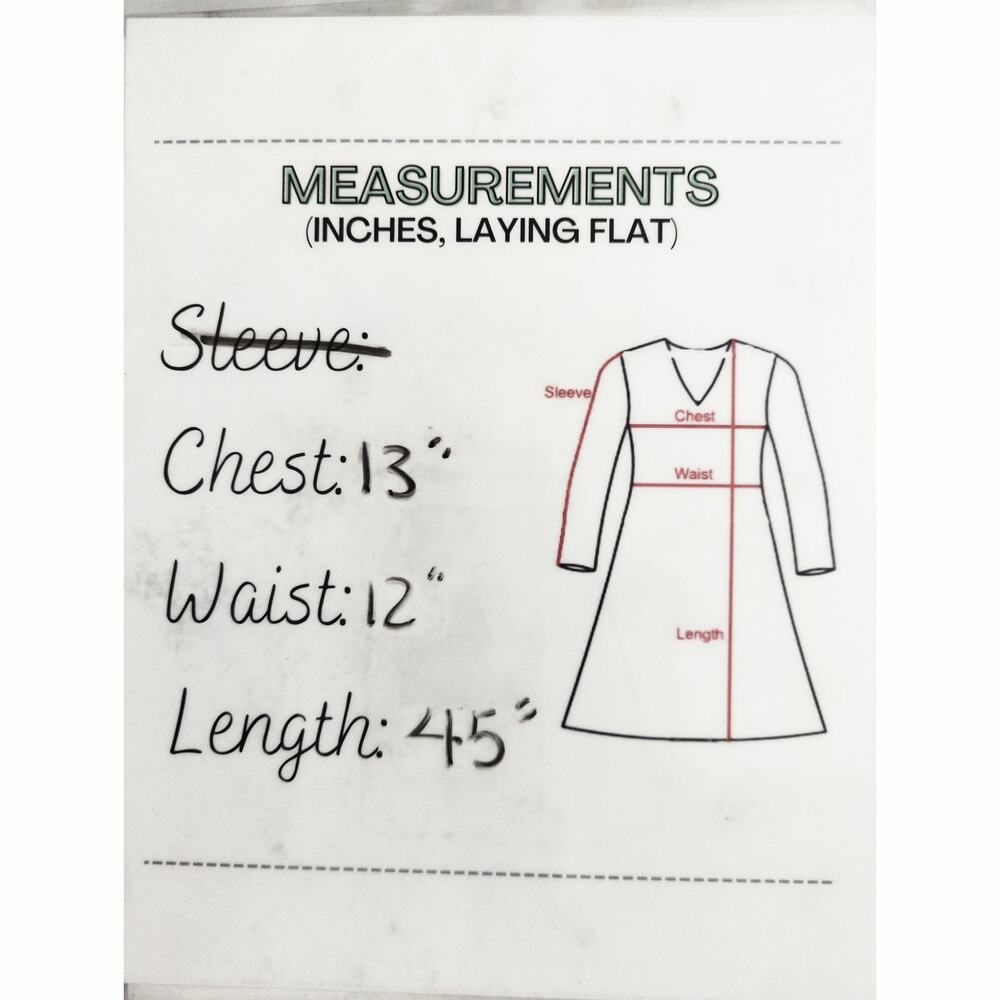 MEASUREMENTS
(INCHES, LAYING FLAT)
Sleeve:
Chest: 13"
Waist: 12"
Length: 45"
Sleeve
Chest
Waist
Length